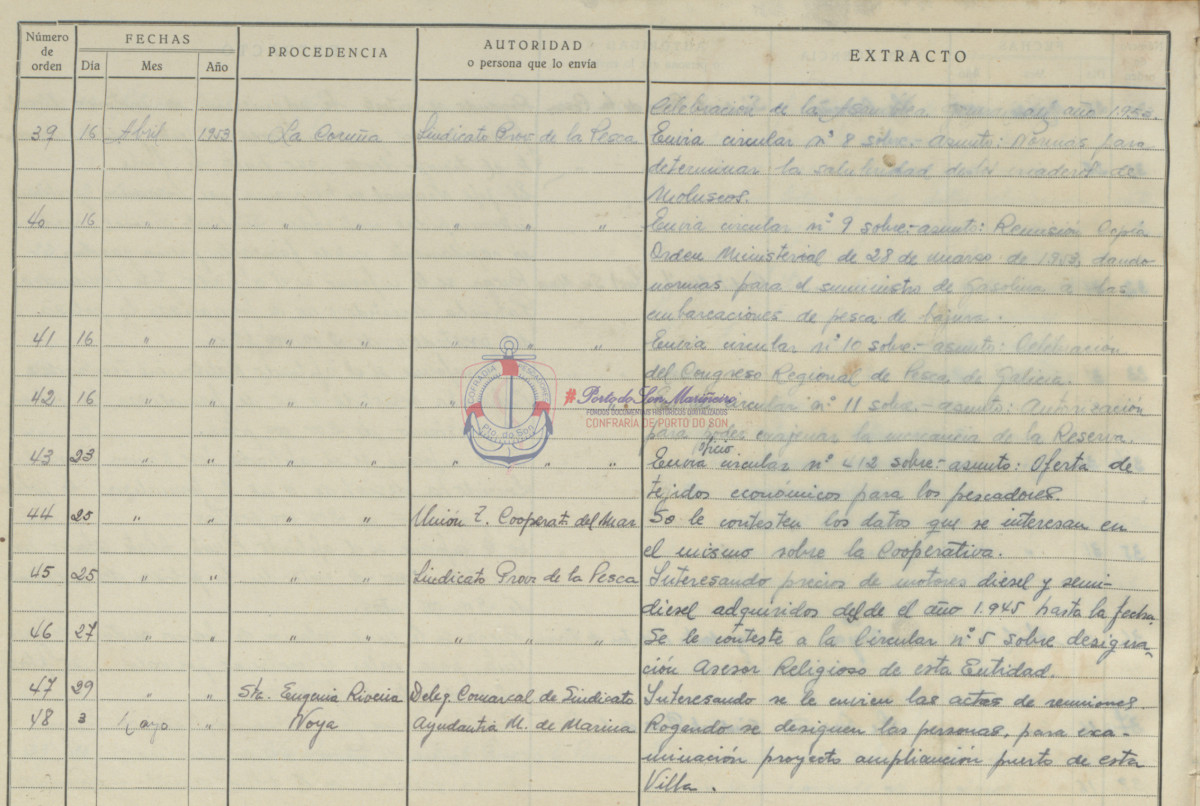 Número de orden
FECHAS
Día Mes Año
PROCEDENCIA
AUTORIDAD
o persona que lo envía
EXTRACTO
Celebración de la Asamblea año 1953.
39 16 Abril 1953 La Coruña Sindicato Prov. de la Pesca Envia circular nº 8 sobre.- asunto: Normas para
determinar la salubridad de los criaderos de
Moluscos.
40 16 " " " " " " " Envia circular nº 9 sobre:- asunto: Remisión Copia
Orden Ministerial de 28 de marzo de 1953, dando
normas para el suministro de gasolina a las
embarcaciones de pesca de bajura.
41 16 " " " " " " " Envia circular nº 10 sobre:- asunto: Celebración
del Congreso Regional de Pesca de Galicia.
42 16 " " " " " circular nº 11 sobre.- asunto: Autorización
para poder enajenar la mercancia de la Reserva.
oficio
43 23 " " " " " " " Envia circular nº 412 sobre:- asunto: Oferta de
tejidos económicos para los pescadores.
44 25 " " " " Unión T. Cooperat. del Mar So le contesten los datos que se interesan en
el mismo sobre la Cooperativa.
45 25 " " " " Sindicato Prov. de la Pesca Interesando precios de motores diesel y semi-
diesel adquiridos desde el año 1.945 hasta la fecha.
46 27 " " " " " " " Se le conteste a la Circular nº 5 sobre designa-
ción Asesor Religioso de esta Entidad.
47 29 " " Sta. Eugenia Riveira Deleg. Comarcal de Sindicato Interesando se le envien las actas de reuniones
48 3 Mayo " Noya Ayudantia M. de Marina Rogando se designen las personas, para exa-
minación proyecto ampliación puerto de esta
Villa.
COFRADIA PESCADORES
Pto. do Son
#Porto do Son Mariñeiro
FONDOS DOCUMENTAIS HISTÓRICOS DIXITALIZADOS
CONFRARIA DE PORTO DO SON